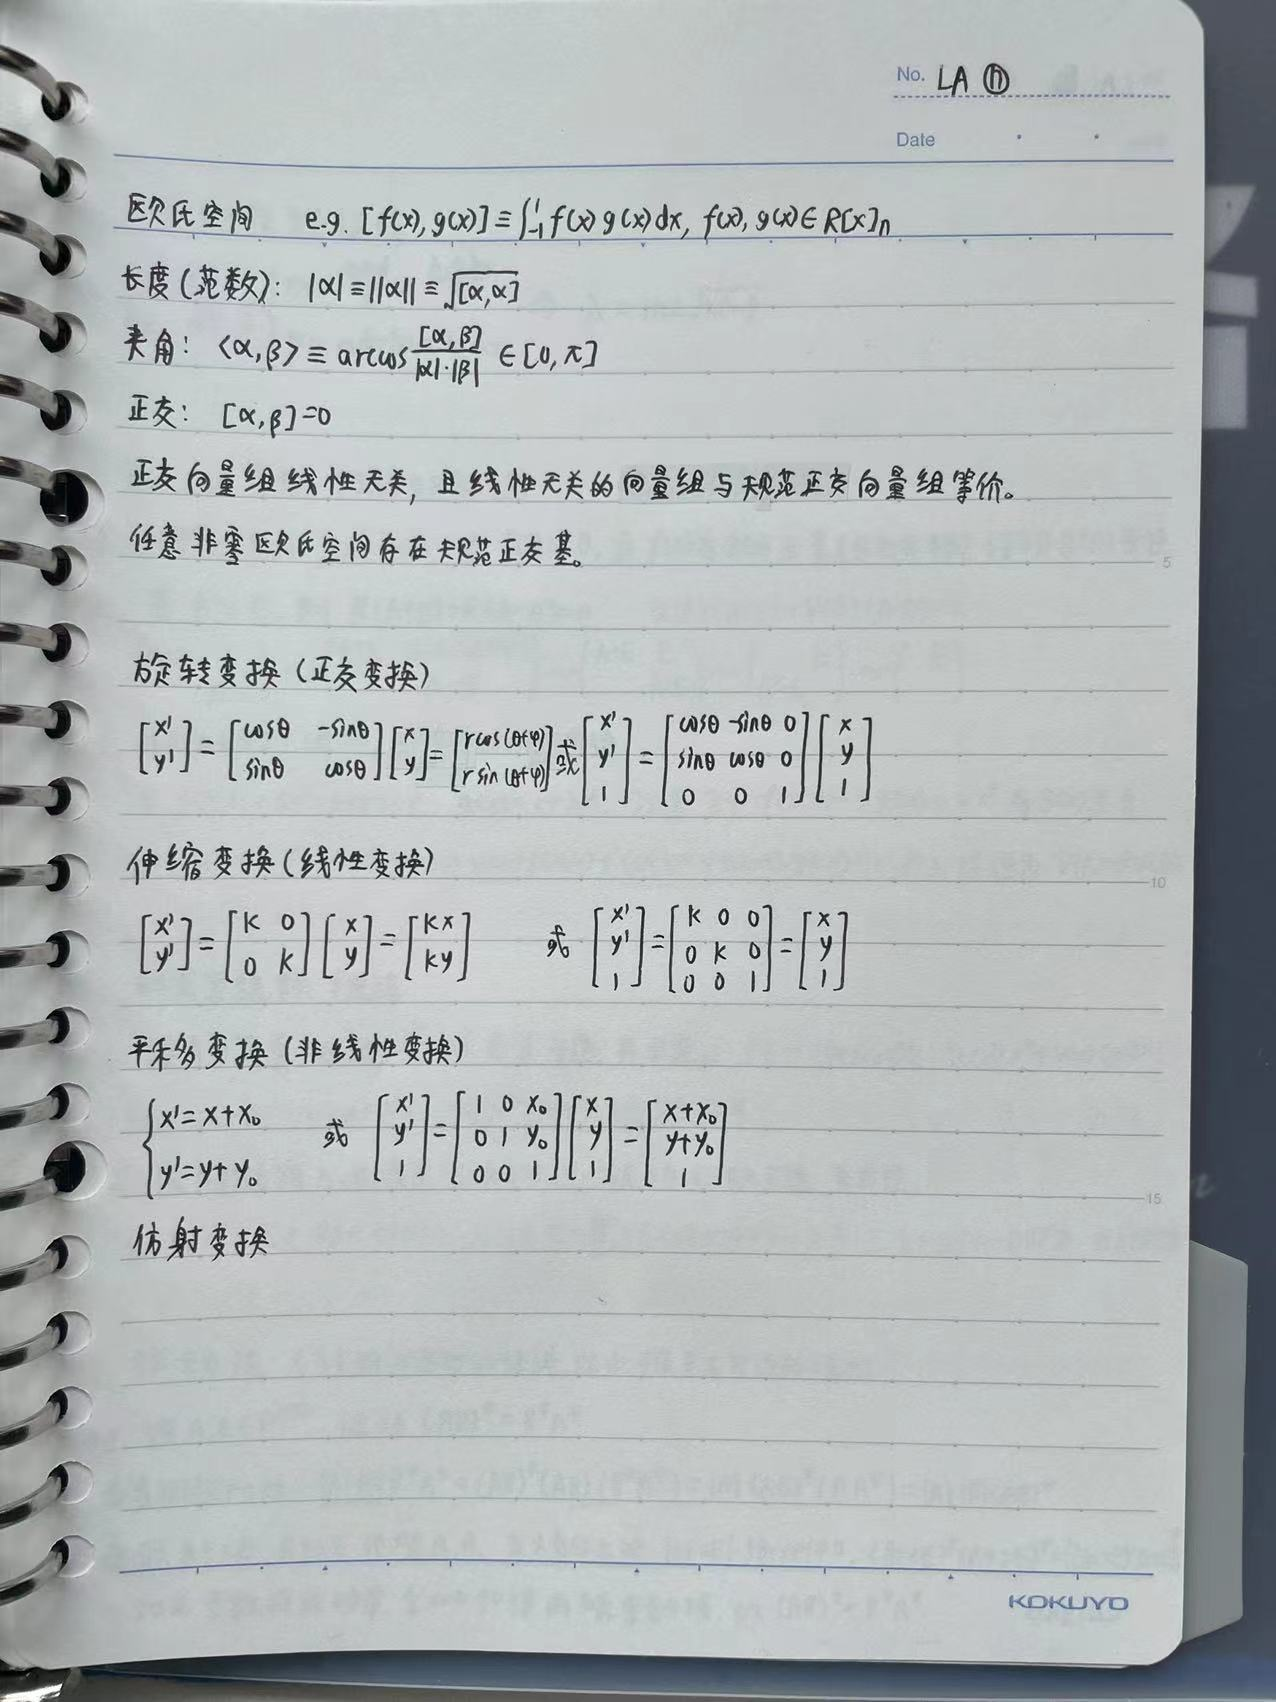 No. LA ⑪
Date
欧氏空间 e.g. [f(x), g(x)] ≡ ∫₋₁¹ f(x) g(x) dx, f(x), g(x) ∈ R[x]ₙ
长度(范数): |α| ≡ ||α|| ≡ √[α,α]
夹角: <α,β> ≡ arccos [α,β]/|α|·|β| ∈ [0, π]
正交: [α,β]=0
正交向量组线性无关, 且线性无关的向量组与规范正交向量组等价。
任意非零欧氏空间存在规范正交基。
5
旋转变换(正交变换)
[x' y'] = [cosθ -sinθ; sinθ cosθ] [x y] = [rcos(θ+φ) rsin(θ+φ)] 或 [x' y' 1] = [cosθ -sinθ 0; sinθ cosθ 0; 0 0 1] [x y 1]
伸缩变换(线性变换)
10
[x' y'] = [k 0; 0 k] [x y] = [kx ky] 或 [x' y' 1] = [k 0 0; 0 k 0; 0 0 1] = [x y 1]
平移变换(非线性变换)
{x'=x+x₀ y'=y+y₀ 或 [x' y' 1] = [1 0 x₀; 0 1 y₀; 0 0 1] [x y 1] = [x+x₀ y+y₀ 1]
15
仿射变换
KOKUYO